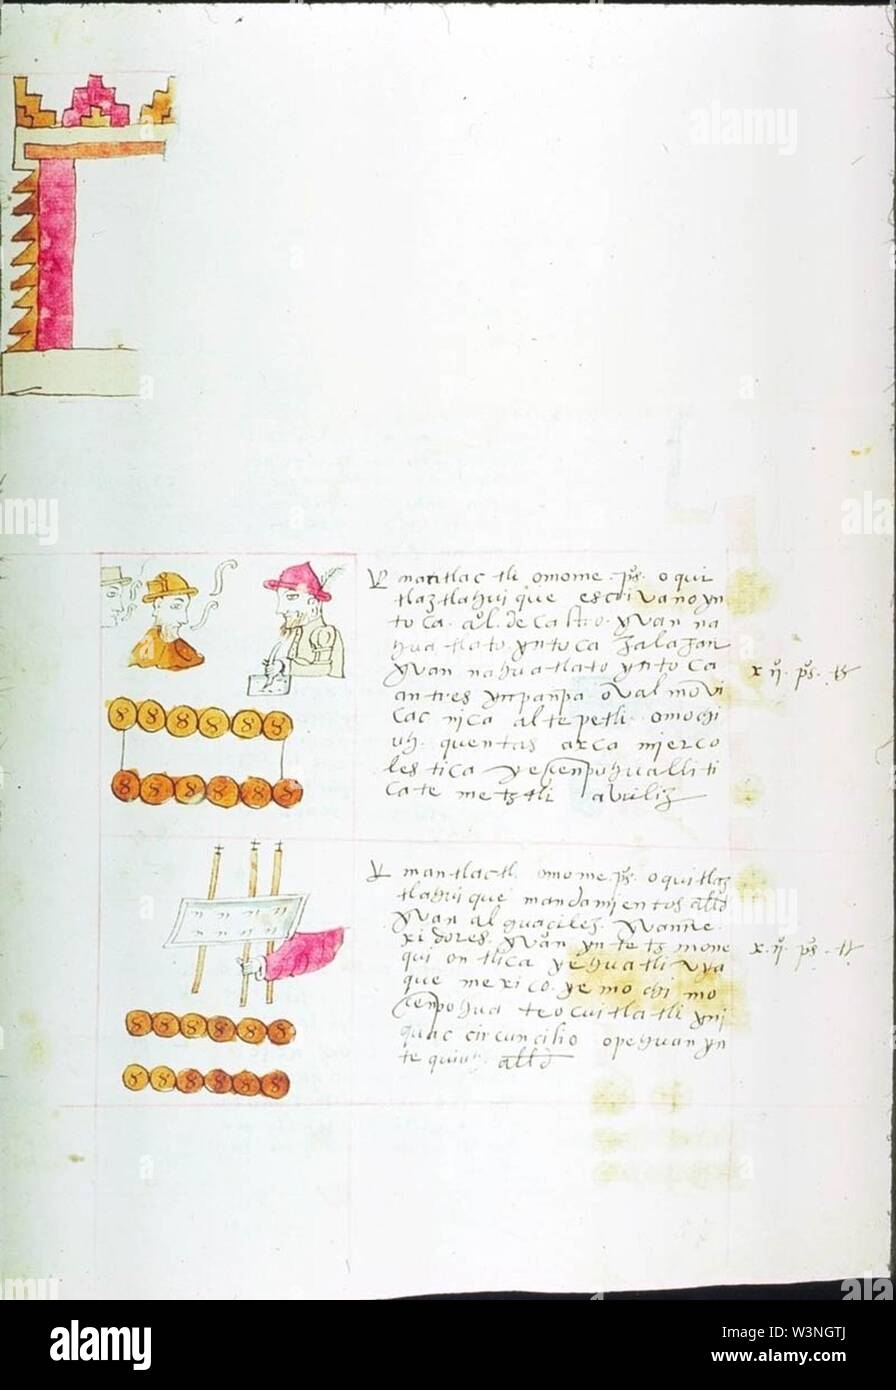 mantlactli omome p̃s. oqui
tlaztlahuique escrivano yn
toca. al. de castro. yvan na
huatlato. yntoca salazar
yvan nahuatlato yntoca
antres ynpanpa oval movi
cac nica altepetli. omochi
uh. quentas arca mierco
lestica ye cenpohualliti
cate metztli abriliz
x ij. p̃s. ts
mantlactli omome p̃s. oquitlaz
tlahuique mandamientos alld
yvan alguacilez. yvan re
xidores. yvan yn
qui ontlica yehuatli vya
que mexico. ye mochi mo
cenpohua teocuitlatli yni
quac circuncisio opehuan yn
tequiuh. alld
x. ij. p̃s. ts
alamy
alamy
Image ID: W3NGTJ
www.alamy.com